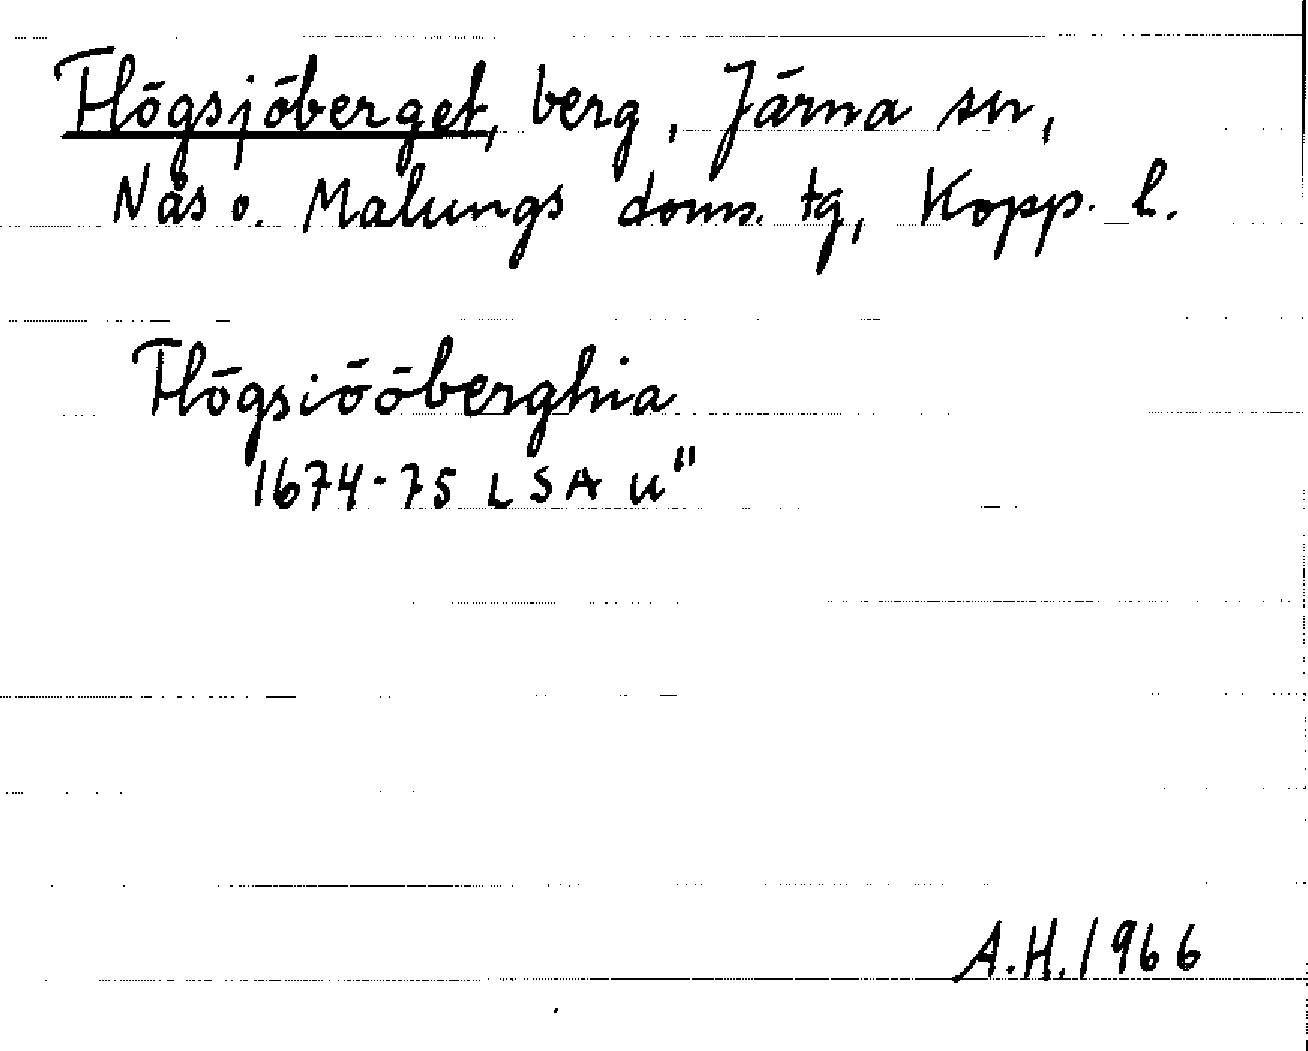 Högsjöberget, berg, Järna sn,
Nås o. Malungs doms. tg, Kopp. l.
Högsiööberghia
1674-75 LSA u"
A.H. 1966